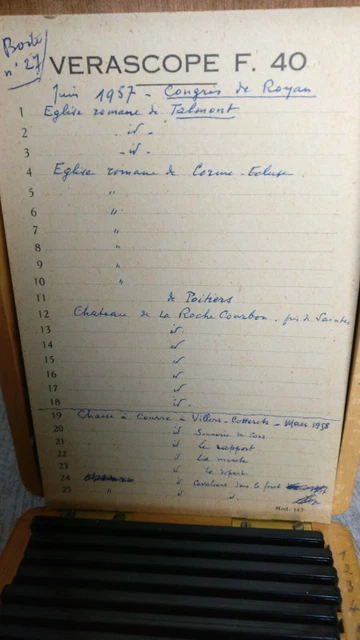 Boste
n° 27
VERASCOPE F. 40
Juin 1957 - Congrès de Royan
1 Eglise romane de Talmont
2 - id -
3 - id -
4 Eglise romane de Corme-Ecluse
5 "
6 "
7 "
8 "
9 "
10 "
11 de Poitiers
12 Chateau de la Roche Courbon. près de Saintes
13 id.
14 id
15 id
16 id
17 id
18 id.
19 Chasse à courre à Villers-Cotterets - Mars 1958
20 id
21 id le rapport
22 id La meute
23 id
24 id Cavaliers dans la forêt
25 " id id.
Mod. 167
1
2
3
4